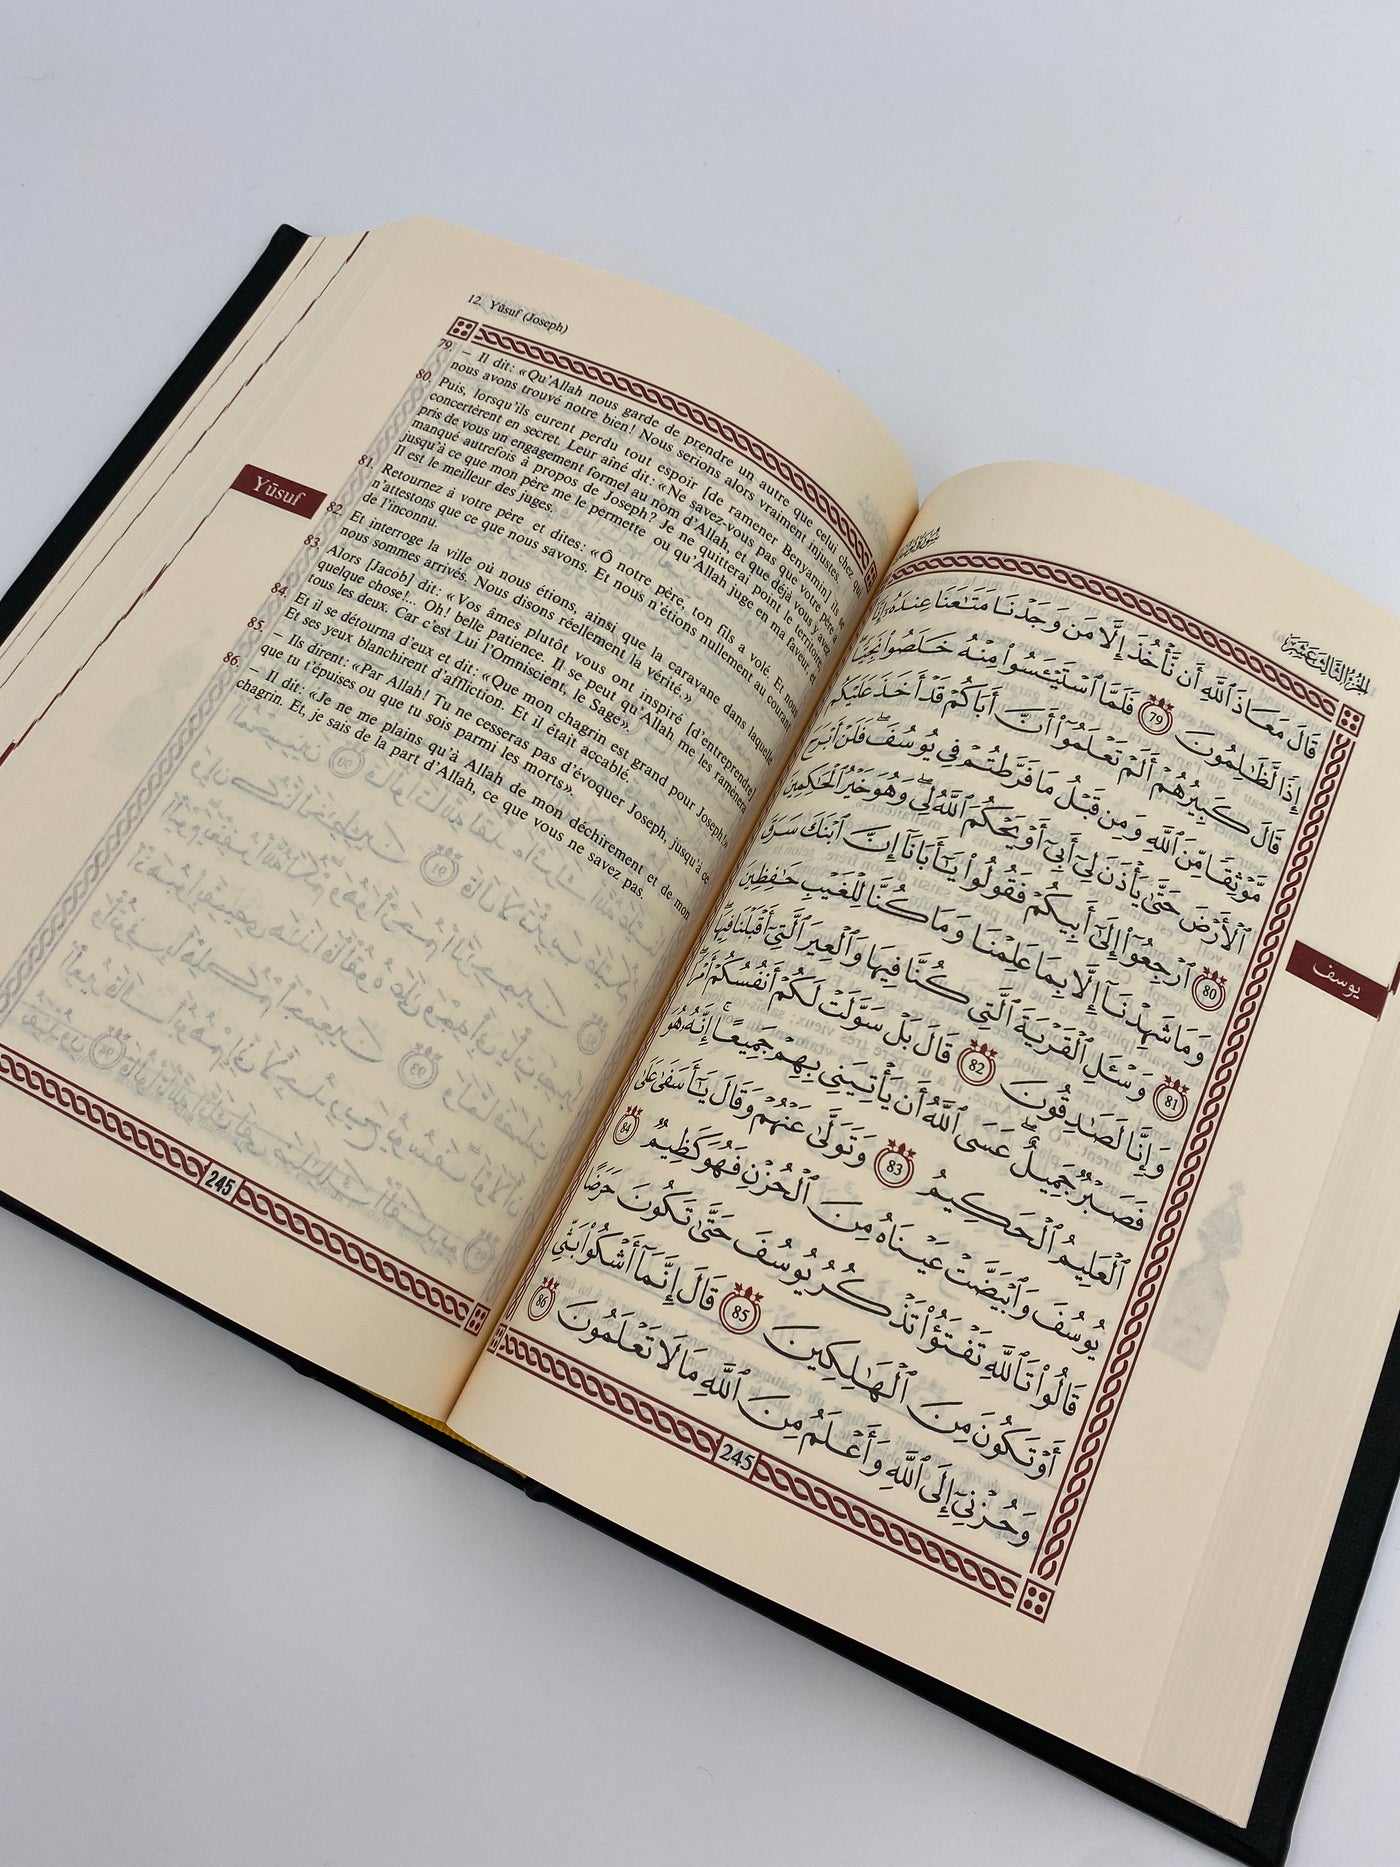 12. Yūsuf (Joseph)
79. – Il dit: «Qu'Allah nous garde de prendre un autre que celui chez qui
nous avons trouvé notre bien! Nous serions alors vraiment injustes.
80. Puis, lorsqu'ils eurent perdu tout espoir [de ramener Benyamin] ils se
concertèrent en secret. Leur aîné dit: «Ne savez-vous pas que votre père a
pris de vous un engagement formel au nom d'Allah, et que déjà vous y avez
manqué autrefois à propos de Joseph? Je ne quitterai point le territoire,
jusqu'à ce que mon père me le permette ou qu'Allah juge en ma faveur, et
Il est le meilleur des juges.
81. Retournez à votre père et dites: «Ô notre père, ton fils a volé. Et nous
n'attestons que ce que nous savons. Et nous n'étions nullement au courant
de l'inconnu.
82. Et interroge la ville où nous étions, ainsi que la caravane dans laquelle
nous sommes arrivés. Nous disons réellement la vérité.»
83. Alors [Jacob] dit: «Vos âmes plutôt vous ont inspiré [d'entreprendre]
quelque chose!.. Oh! belle patience. Il se peut qu'Allah me les ramènera
tous les deux. Car c'est Lui l'Omniscient, le Sage».
84. Et il se détourna d'eux et dit: «Que mon chagrin est grand pour Joseph!»
Et ses yeux blanchirent d'affliction. Et il était accablé.
85. – Ils dirent: «Par Allah! Tu ne cesseras pas d'évoquer Joseph, jusqu'à ce
que tu t'épuises ou que tu sois parmi les morts».
86. – Il dit: «Je ne me plains qu'à Allah de mon déchirement et de mon
chagrin. Et, je sais de la part d'Allah, ce que vous ne savez pas.
Yūsuf
245
الجزء الثالث عشر
قَالَ مَعَاذَ ٱللَّهِ أَن نَّأْخُذَ إِلَّا مَن وَجَدْنَا مَتَـٰعَنَا عِندَهُۥٓ إِنَّآ
إِذًا لَّظَـٰلِمُونَ 79 فَلَمَّا ٱسْتَيْـَٔسُوا۟ مِنْهُ خَلَصُوا۟ نَجِيًّا
قَالَ كَبِيرُهُمْ أَلَمْ تَعْلَمُوٓا۟ أَنَّ أَبَاكُمْ قَدْ أَخَذَ عَلَيْكُم
مَّوْثِقًا مِّنَ ٱللَّهِ وَمِن قَبْلُ مَا فَرَّطتُمْ فِى يُوسُفَ ۖ فَلَنْ أَبْرَحَ
ٱلْأَرْضَ حَتَّىٰ يَأْذَنَ لِىٓ أَبِىٓ أَوْ يَحْكُمَ ٱللَّهُ لِى ۖ وَهُوَ خَيْرُ ٱلْحَـٰكِمِينَ
80 ٱرْجِعُوٓا۟ إِلَىٰٓ أَبِيكُمْ فَقُولُوا۟ يَـٰٓأَبَانَآ إِنَّ ٱبْنَكَ سَرَقَ
وَمَا شَهِدْنَآ إِلَّا بِمَا عَلِمْنَا وَمَا كُنَّا لِلْغَيْبِ حَـٰفِظِينَ
81 وَسْـَٔلِ ٱلْقَرْيَةَ ٱلَّتِى كُنَّا فِيهَا وَٱلْعِيرَ ٱلَّتِىٓ أَقْبَلْنَا فِيهَا ۖ
وَإِنَّا لَصَـٰدِقُونَ 82 قَالَ بَلْ سَوَّلَتْ لَكُمْ أَنفُسُكُمْ أَمْرًا ۖ
فَصَبْرٌ جَمِيلٌ ۖ عَسَى ٱللَّهُ أَن يَأْتِيَنِى بِهِمْ جَمِيعًا ۚ إِنَّهُۥ هُوَ
ٱلْعَلِيمُ ٱلْحَكِيمُ 83 وَتَوَلَّىٰ عَنْهُمْ وَقَالَ يَـٰٓأَسَفَىٰ عَلَىٰ
يُوسُفَ وَٱبْيَضَّتْ عَيْنَاهُ مِنَ ٱلْحُزْنِ فَهُوَ كَظِيمٌ 84
قَالُوا۟ تَٱللَّهِ تَفْتَؤُا۟ تَذْكُرُ يُوسُفَ حَتَّىٰ تَكُونَ حَرَضًا
أَوْ تَكُونَ مِنَ ٱلْهَـٰلِكِينَ 85 قَالَ إِنَّمَآ أَشْكُوا۟ بَثِّى
وَحُزْنِىٓ إِلَى ٱللَّهِ وَأَعْلَمُ مِنَ ٱللَّهِ مَا لَا تَعْلَمُونَ 86
يوسف
245